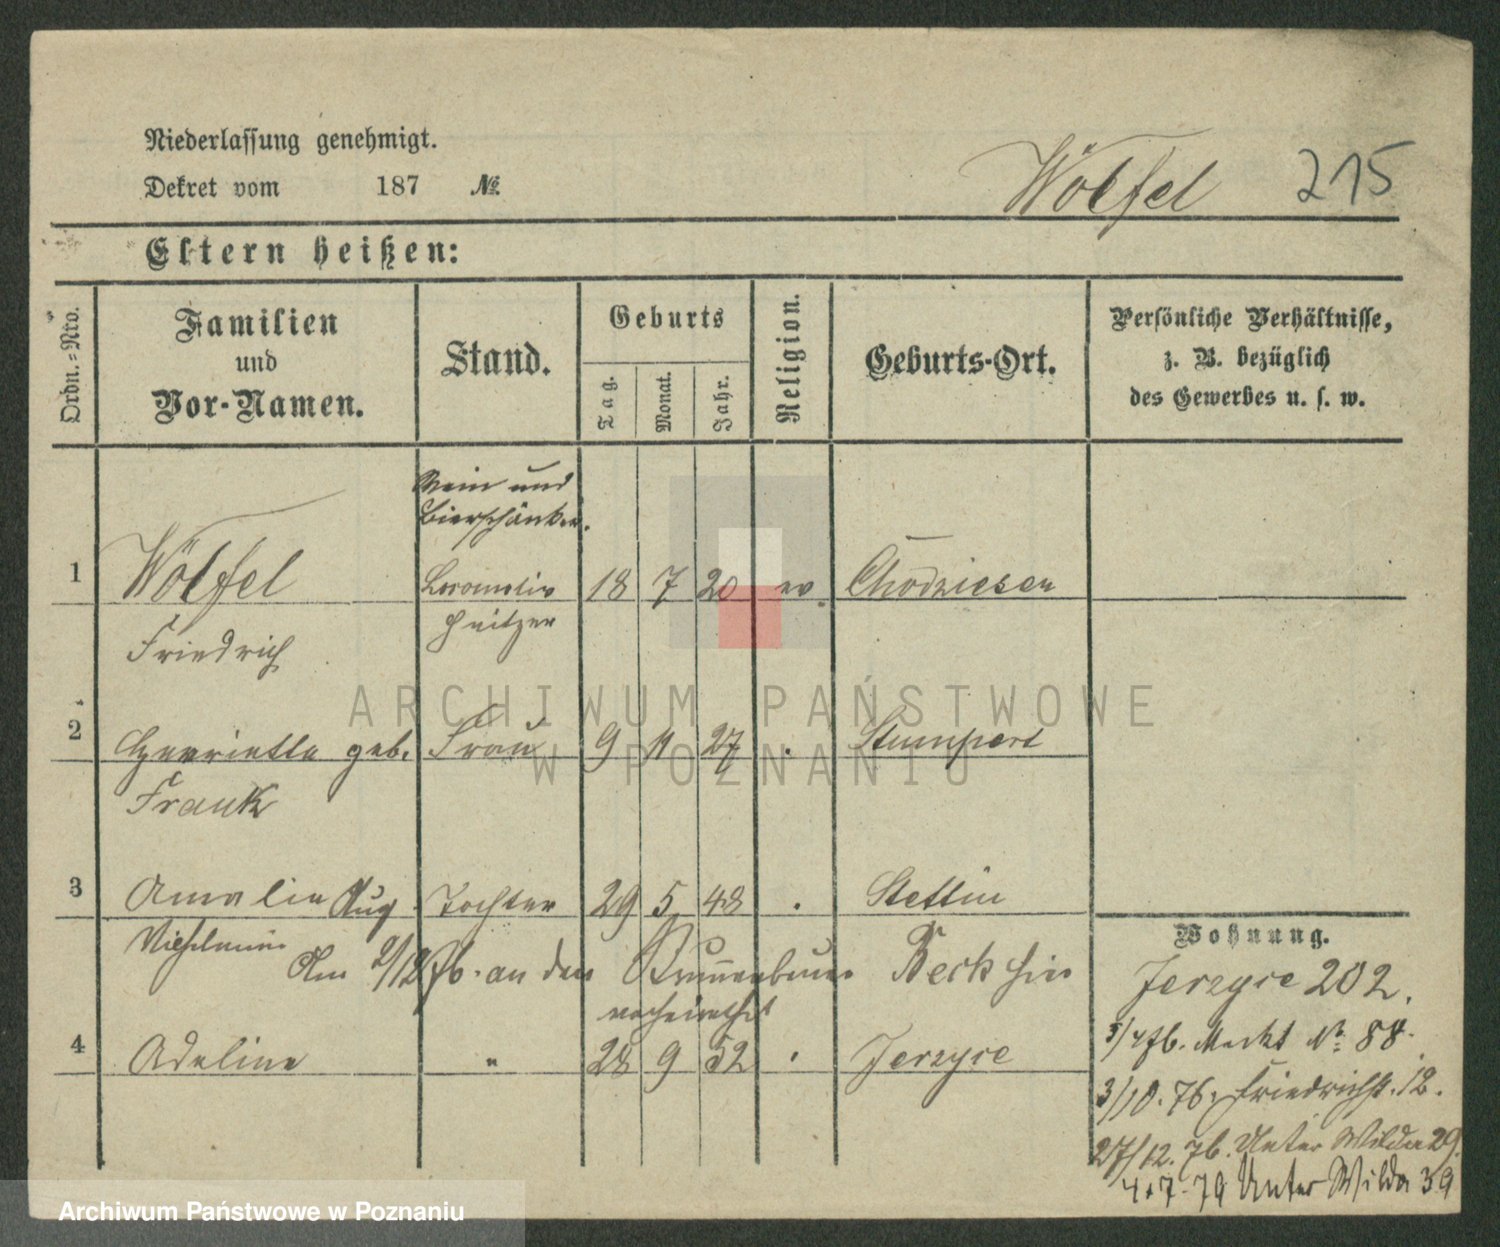 Niederlassung genehmigt.
Dekret vom 187 №
Wölfel 215
Eltern heißen:
Ordn.=Nro.
Familien
und
Vor-Namen.
Stand.
Geburts
Tag.
Monat.
Jahr.
Religion.
Geburts-Ort.
Persönliche Verhältnisse,
z. B. bezüglich
des Gewerbes u. s. w.
Wein und
Bierschänker.
1 Wölfel Locomotiv 18 7 20 ev. Chodziesen
Friedrich
2 Henriette geb. Frau 9 11 27 Stumpert
Frank
3 Amalie Aug. Tochter 29 5 48 . Stettin
Wilhelmine
Am 2/12 76. an den Brunnenbauer Beck hier
verheirathet
4 Adeline " 28 9 52 . Jerzyce
Wohnung.
Jerzyce 202.
3/4 76. Markt № 88.
3/10. 76. Friedrichst. 12.
27/12. 76. Unter Wilda 29.
4.7.79 Unter Wilda 39
ARCHIWUM PAŃSTWOWE
W POZNANIU
Archiwum Państwowe w Poznaniu